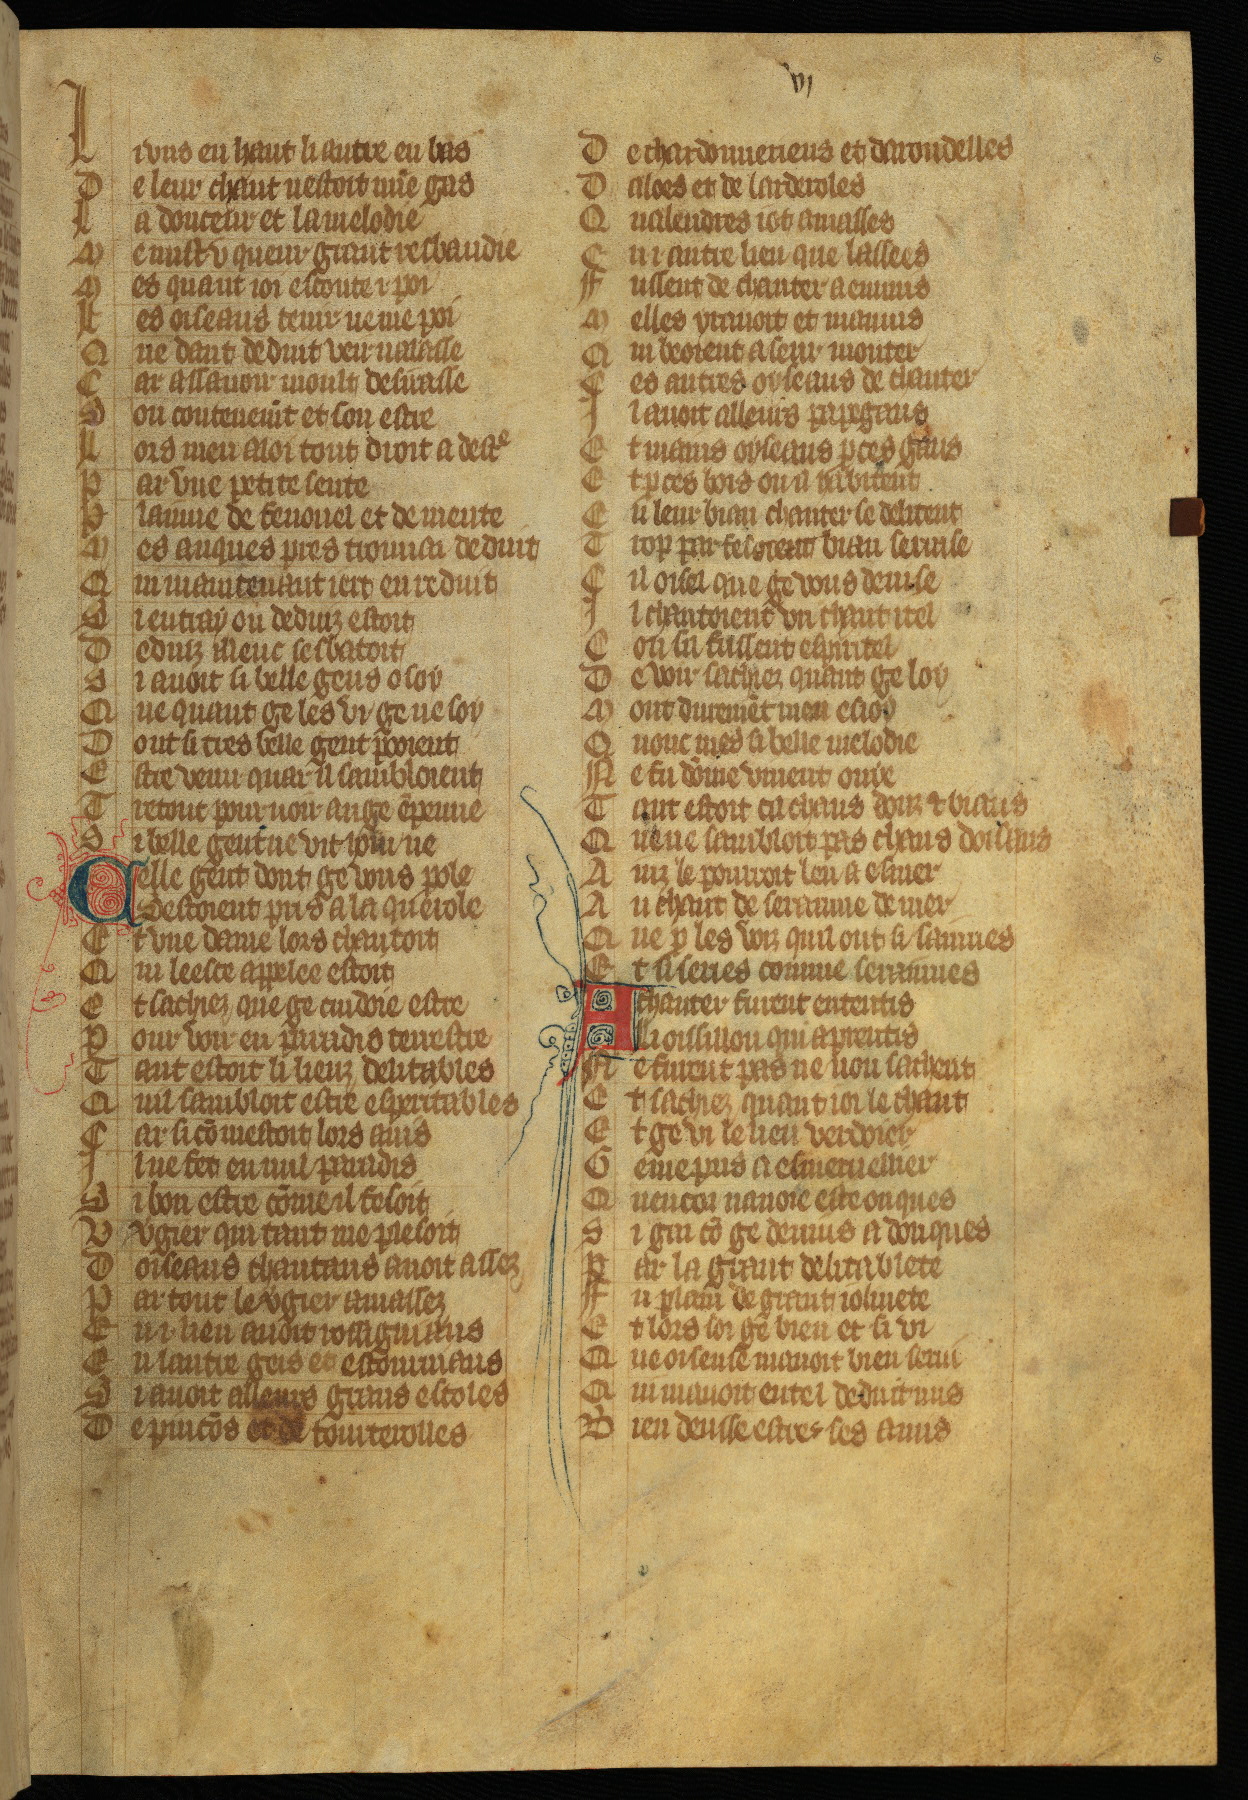 vi
6
L i vns en haut li autre en bas
D e leur chant nestoit mie gas
L a douceur et la melodie
M e mist v queur grant resbaudie
M es quant ioi escoute i poi
L es oiseaus tenir ne me poi
Q ue dant deduit veir nalasse
C ar assauoir moult desirasse
S on contenemt et son estre
L ors men aloi tout droit a destre
P ar vne petite sente
P lainne de fenouel et de mente
M es auques pres trouuai deduit
Q ui maintenant iert en reduit
S i entray ou deduiz estoit
D eduiz illeuc sesbatoit
S i auoit si belle gens o soy
Q ue quant ge les vy ge ne soy
D ont si tres belle gent pooient
E stre venu quar il sambloient
T retout pour uoir ange epenne
S i belle gent ne vit hom ne
Celle gent dont ge vous pole
Sestoient pris a la querole
E t vne dame lors chantoit
Q ui leesce appelee estoit
E t sachiez que ge cuidoie estre
P our voir en paradis terrestre
T ant estoit li lieuz delitables
Q uil sambloit estre esperitables
C ar si co mestoit lors auis
I l ne fet en nul paradis
S i bon estre come il fesoit
V vgier qui tant me plesoit
D oiseaus chantans auoit assez
P ar tout le vgier amassez
E n i lieu auoit rossigniaus
E n lautre geis et estourniaus
S i auoit alleurs grans escoles
D e pincons et de tourterolles
D e chardonnereus et darondelles
D aloes et de larderoles
Q ualendres iot amasses
E n i autre lieu que lassees
F ussent de chanter a enuius
M elles y auoit et mauuis
Q ui beoient a seur monter
C es autres oyseaus de chanter
I l auoit alleurs papegaus
E t mains oyseaus p ces gaus
E t p ces bois ou il habitent
E n leur biau chanter se delitent
T rop par fesoient biau seruise
C il oisel que ge vous deuise
I l chantoient vn chant itel
C on sil fussent espiritel
D e voir sachiez quant ge loy
M ont durement men esioy
Q nonc mes si belle melodie
N e fu dome vinent ouye
T ant estoit cil chans douz & biaus
Q ne ne sambloit pas chans doisiaus
A inz le pourroit len a esmer
A u chant de serainne de mer
Q ue p les voiz quil ont si sainnes
E t si series comme serainnes
A chanter furent ententis
Li oisillon qui aprentis
N e furent pas ne non sachent
E t sachiez quant ioi le chant
E t ge vi le lieu verdoier
G e me pris a esmerueillier
Q uencor nauoie este onques
S i gai co ge deuins adonques
P ar la grant delitablete
F u plain de grant ioliuete
E t lors soi ge bien et si vi
Q ue oiseuse mauoit bien serui
Q ui mauoit en tel deduit mis
B ien deusse estre ses amis